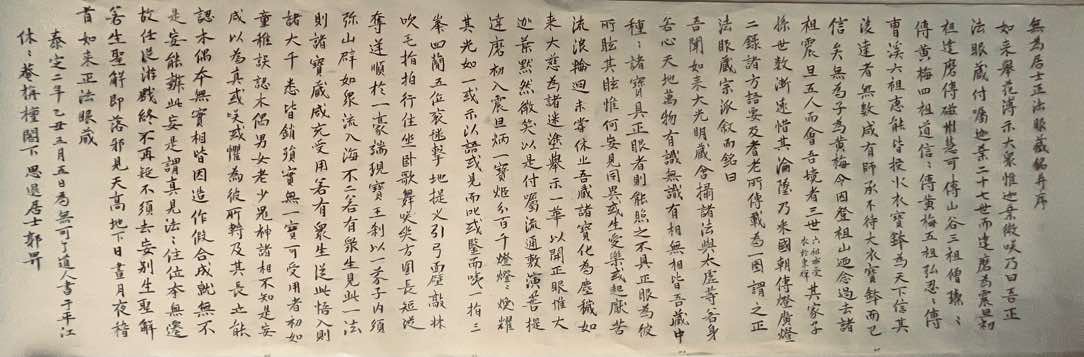 無為居士正法眼藏銘并序
如来舉花溥示大衆惟迦葉微咲乃曰吾正
法眼藏付囑迦葉二十七世而達磨為震旦初
祖達磨傳磁州慧可可傳山谷三祖僧璨璨
傳黄梅四祖道信信傳黄梅五祖弘忍忍傳
曹溪六祖惠能皆授以衣寳鉢為天下信其
後達者無數咸有師承不待大衣寳鉢而已
信矣無為子為黄梅令因登祖山迴念過去諸
祖震旦五人而會吾境者三世其家子
孫世數漸逺惜其淪墜乃采國朝傳燈廣燈
二録諸方語要及耆老所傳載為一圖謂之正
法眼藏宗派叙而銘曰
吾聞如来大光明藏含攝諸法與太虚等吾身
吾心天地萬物有識無識有相無相皆吾藏中
種種諸寳具正眼者則能照之不具正眼為彼
所眩其眩惟何妄見同異或生愛樂或起厭苦
流浪輪迴未嘗休止吾藏諸寳化為塵穢如
来大慈為諸迷塗舉示一華以開正眼惟大
迦葉黙然微笑以是付囑流通敷演菩提
達磨初入震旦炳一寳炬分百千燈燈燈煥耀
其光如一或示以語或見而叱或豎而咲一拍三
奪逆順於一毫端現寳王刹以一芥子内須
弥山群如衆流入海不二若有衆生見此一法
則諸寳藏咸充受用若有衆生從此悟入則
諸大千悉皆銷殞實無一寳可受用者初如
童稚誤認木偶男女老少鬼神諸相不知是妄
咸以為真或咲或懼為彼所轉及其長立能
認木偶本無實相皆因造作假合成就無不
是妄能辦此妄是謂真見法法住位本無遷
故任從游戲終不再疑不須去妄别生聖解
若生聖解即落邪見天高地下日晝月夜稽
首如来正法眼藏
泰定二年乙丑五月五日為無可了道人書于平江